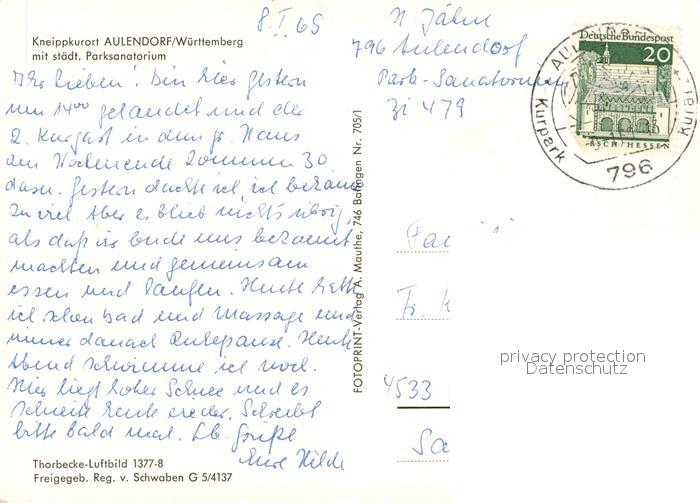 8.I.69
Kneippkurort AULENDORF/Württemberg
mit städt. Parksanatorium
Ihr Lieben! Bin hier gestern
um 14⁰⁰ gelandet und der
2. Kurgast in dem gr. Haus
am Wochenende kommen 30
dazu. Gestern dachte ich ich bekäme
zu viel aber es blieb nichts übrig,
als daß wir beide uns bekannt
machten und gemeinsam
essen und laufen. Heute hatte
ich schon Bad und Massage und
immer danach Ruhepause. Heute
Abend schwimme ich noch.
Hier liegt hoher Schnee und es
schneit heute wieder. Schreibt
bitte bald mal. Lb. Grüße
Eure Hilde
Thorbecke-Luftbild 1377-8
Freigegeb. Reg. v. Schwaben G 5/4137
FOTOPRINT-Verlag A. Mauthe, 746 Balingen Nr. 705/1
H. Jähn
796 Aulendorf
Park-Sanatorium
Zi 479
Deutsche Bundespost
20
LORSCH/HESSEN
Kurpark
796
Fr.
4533
privacy protection
Datenschutz